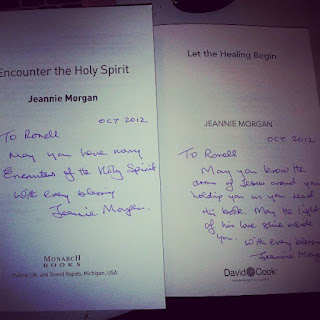 Encounter the Holy Spirit
Jeannie Morgan
OCT 2012
To Ronell
May you have many
Encounters of the Holy Spirit
With every blessing
Jeannie Morgan.
MONARCH
BOOKS
Oxford, UK, and Grand Rapids, Michigan, USA
Let the Healing Begin
JEANNIE MORGAN
OCT 2012
To Ronell
May you know the
arms of Jesus around you
holding you as you read
this book. May the light
of his love shine inside
you. With every blessing
Jeannie Morgan
David C Cook